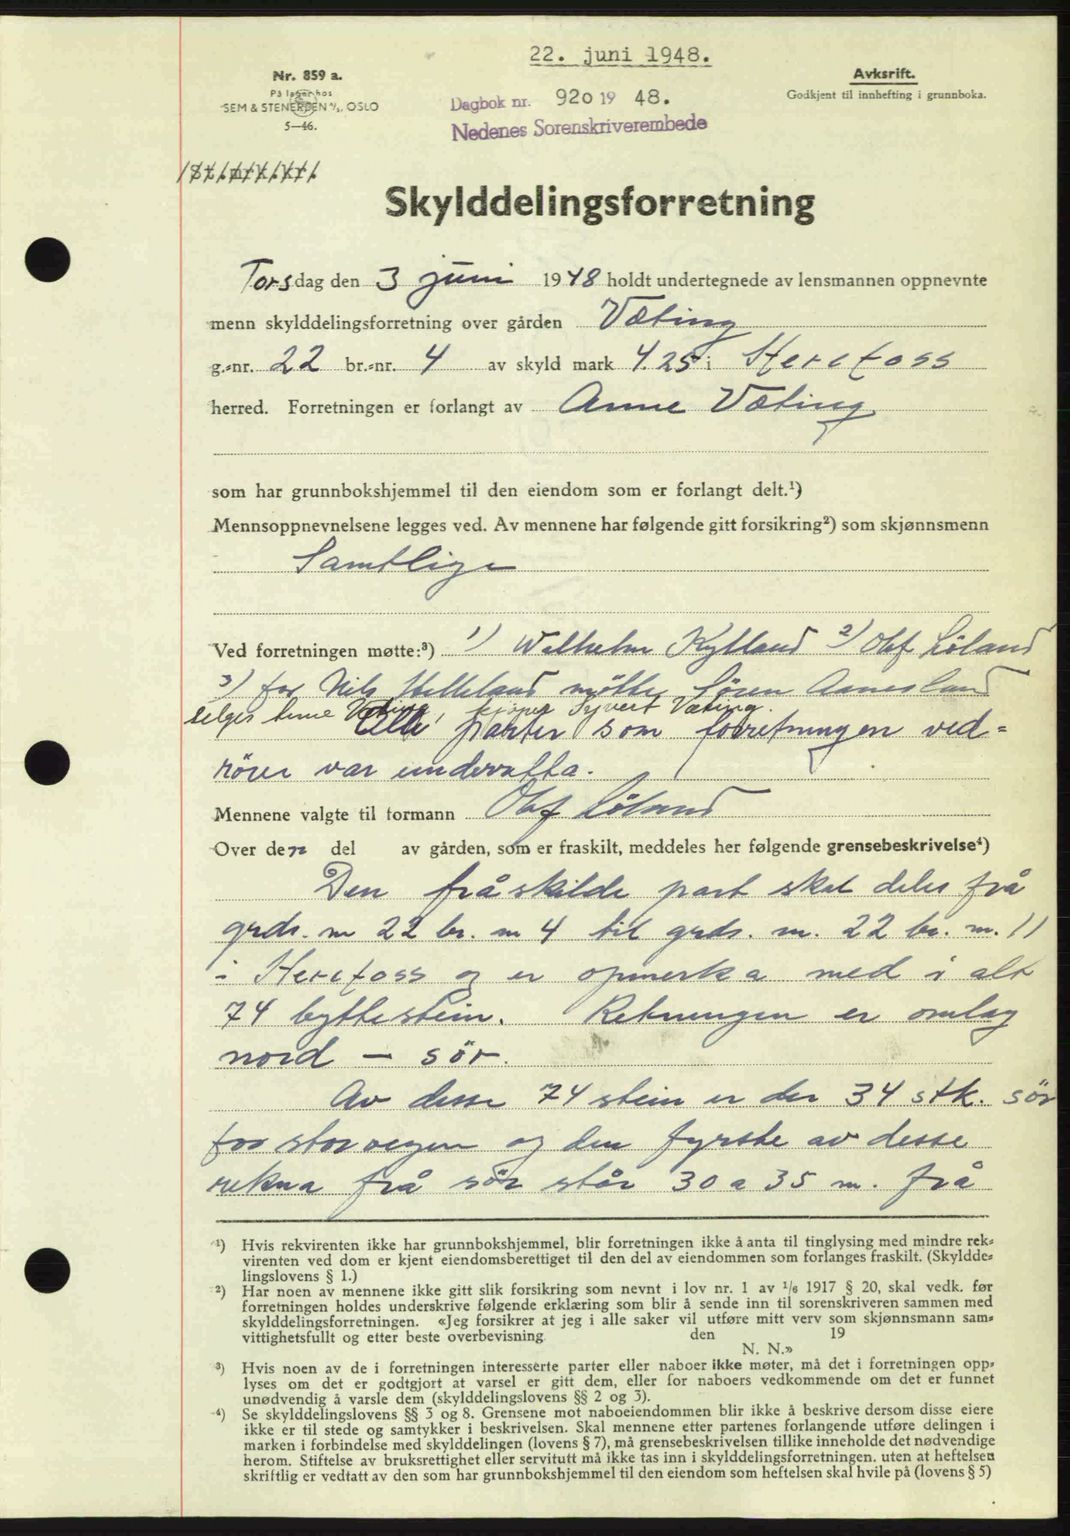 22. juni 1948.
Nr. 859 a.
På lager hos
SEM & STENERSEN A/S, OSLO
5—46.
Dagbok nr. 920 19 48.
Nedenes Sorenskriverembede
Avskrift.
Godkjent til innhefting i grunnboka.
Skylddelingsforretning
Torsdag den 3 juni 1948 holdt undertegnede av lensmannen oppnevnte
menn skylddelingsforretning over gården Væting
g.-nr. 22 br.-nr. 4 av skyld mark 4.25 i Herefoss
herred. Forretningen er forlangt av Anne Væting
som har grunnbokshjemmel til den eiendom som er forlangt delt.¹)
Mennsoppnevnelsene legges ved. Av mennene har følgende gitt forsikring²) som skjønnsmenn
Samtlige
Ved forretningen møtte:³) 1) Wilhelm Kylland 2) Olaf Løland
3) for Nils Helleland møtte Sören Aanesland
selger Anne Væting, kjöper Syvert Væting.
Alle parter som forretningen ved=
rörer var underretta.
Mennene valgte til formann Olaf Løland
Over den del av gården, som er fraskilt, meddeles her følgende grensebeskrivelse⁴)
Den fråskilde part skal deles frå
grds. nr 22 br. nr 4 til grds. nr. 22 br. nr. 11
i Herefoss og er opmerka med i alt
74 byttestein. Retningen er omlag
nord — sör.
Av desse 74 stein er der 34 stk. sör
for storvegen og den fyrste av desse
rekna frå sör står 30 a 35 m. frå
¹) Hvis rekvirenten ikke har grunnbokshjemmel, blir forretningen ikke å anta til tinglysing med mindre rek-
virenten ved dom er kjent eiendomsberettiget til den del av eiendommen som forlanges fraskilt. (Skyldde-
lingslovens § 1.)
²) Har noen av mennene ikke gitt slik forsikring som nevnt i lov nr. 1 av ¹/₆ 1917 § 20, skal vedk. før
forretningen holdes underskrive følgende erklæring som blir å sende inn til sorenskriveren sammen med
skylddelingsforretningen. «Jeg forsikrer at jeg i alle saker vil utføre mitt verv som skjønnsmann sam-
vittighetsfullt og etter beste overbevisning. den 19
N. N.»
³) Hvis noen av de i forretningen interesserte parter eller naboer ikke møter, må det i forretningen opp-
lyses om det er godtgjort at varsel er gitt dem, eller for naboers vedkommende om det er funnet
unødvendig å varsle dem (skylddelingslovens §§ 2 og 3).
⁴) Se skylddelingslovens §§ 3 og 8. Grensene mot naboeiendommen blir ikke å beskrive dersom disse eiere
ikke er til stede og samtykker i beskrivelsen. Skal mennene etter partenes forlangende utføre delingen i
marken i forbindelse med skylddelingen (lovens § 7), må grensebeskrivelsen tillike inneholde det nødvendige
herom. Stiftelse av bruksrettighet eller servitutt må ikke tas inn i skylddelingsforretningen. uten at heftelsen
skriftlig er vedtatt av den som har grunnbokshjemmel til den eiendom som heftelsen skal hvile på (lovens § 5)